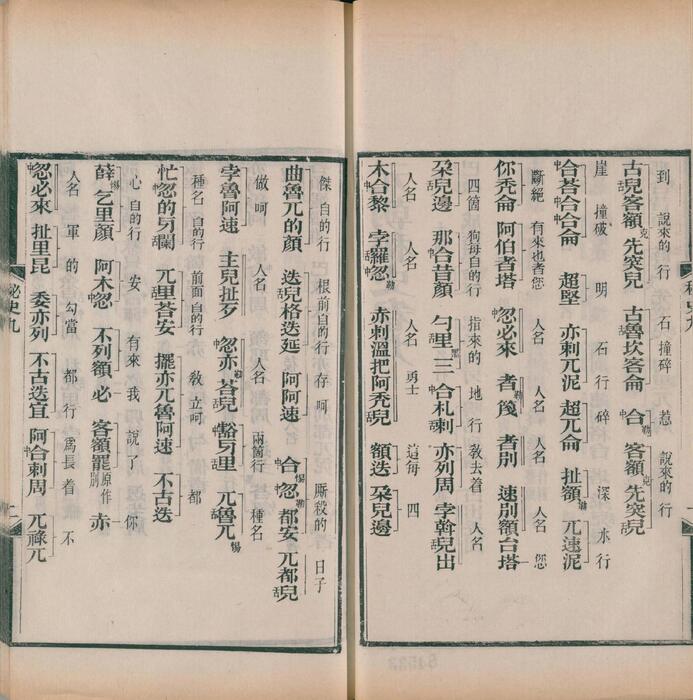 到 說來的 行 石 撞碎 惹 說來的 行
古舌兒客額克先突舌兒 古魯坎客侖 中合勒 客額克先突舌兒
崖 撞破 明 石 行 碎 深 水 行
中合荅中合中合侖 超堅 赤剌兀泥 超兀侖 扯額勒 兀速泥
斷絕 有來也者您 人名 人名 人名 您
你禿侖 阿伯者塔 忽必來 者篾勒 者別 速別額台塔
四箇 狗每自的行 指來的 地 行 教去着 人名
朵舌兒邊 那中合昔顏 勾黑舌里三 中合札剌 亦列周 孛斡舌兒出
人名 人名 人名 勇士 這每 四
木中合黎 孛羅中忽勒 赤剌溫把阿禿舌兒 額迭 朵舌兒邊
傑 自的行 根前自的行 存呵 廝殺的 日子
曲魯兀的顏 迭兒格迭延 阿阿速 中合惕中忽勒都安 兀都舌兒
做呵 人名 人名 兩箇行 種名
孛魯阿速 主兒扯歹 中忽亦勒荅舌兒 豁牙舌里 兀魯兀惕
種名 自的行 前面自的行 教立呵 都
忙中忽的牙舌闌 兀里荅安 擺亦兀魯阿速 不古迭
心 自的行 安 有來 我 說了 你
薛惕乞里顏 阿木中忽 不列額 必 客額罷原作別 赤
人名 軍 的 勾當 都 行 爲長着 不
中忽必來 扯里昆 委亦列 不古迭宜 阿中合剌周 兀祿兀
秘史九 二